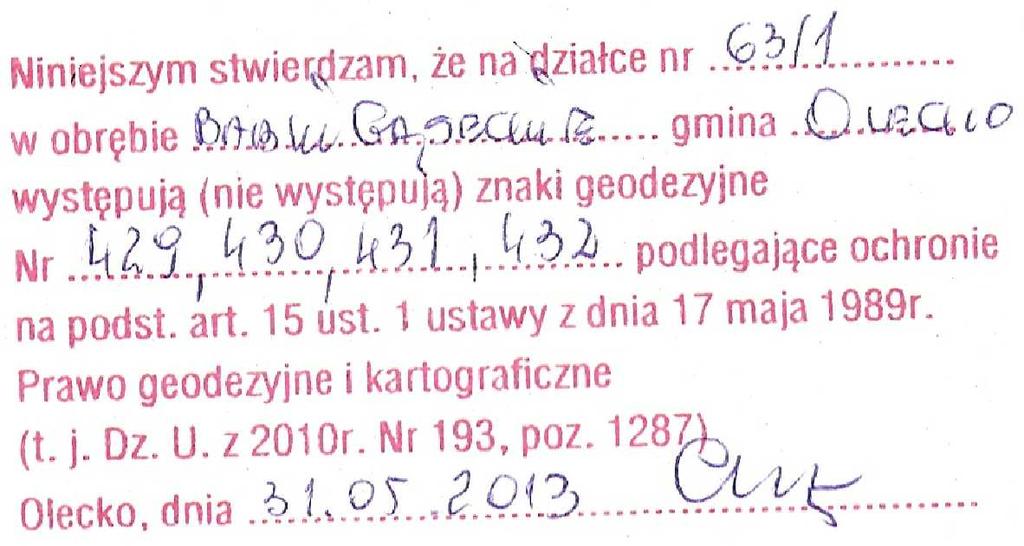 Niniejszym stwierdzam, że na działce nr 63/1
w obrębie BABKI GĄSECKIE gmina OLECKO
występują (nie występują) znaki geodezyjne
Nr 429, 430, 431, 432 podlegające ochronie
na podst. art. 15 ust. 1 ustawy z dnia 17 maja 1989r.
Prawo geodezyjne i kartograficzne
(t. j. Dz. U. z 2010r. Nr 193, poz. 1287)
Olecko, dnia 31.05.2013